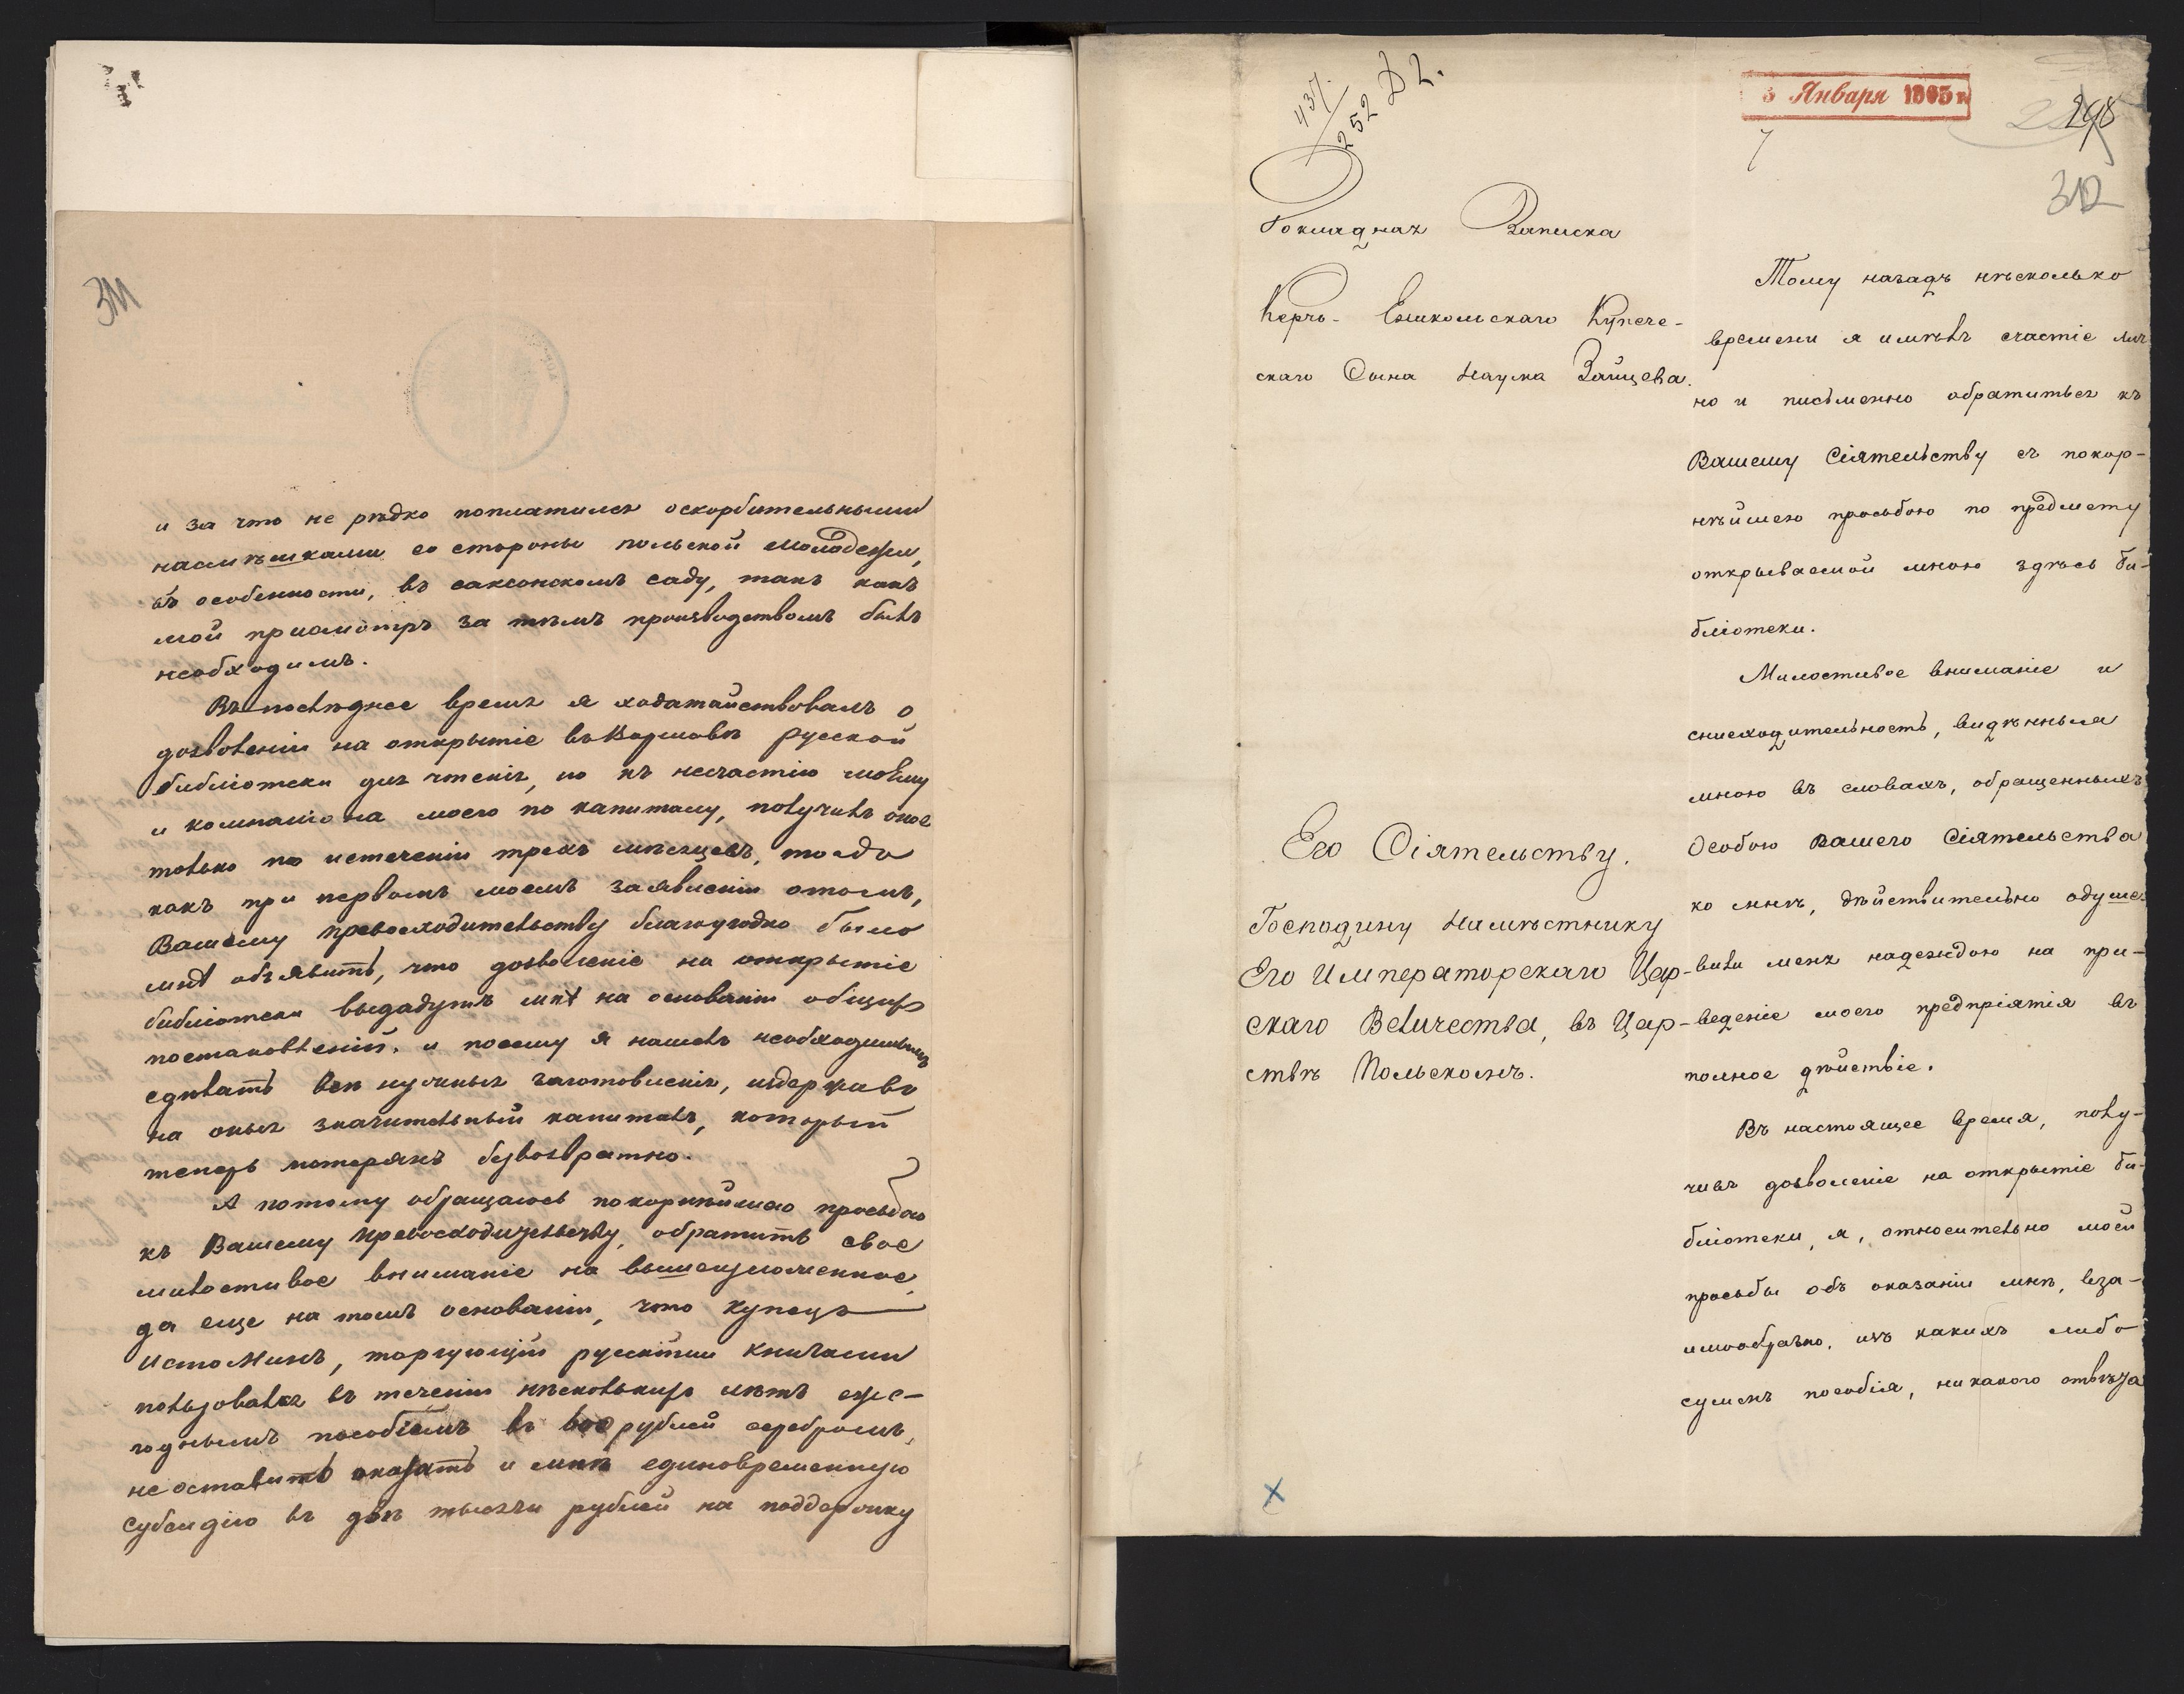 311
и за что не рѣдко поплатился оскорбительными
насмѣшками со стороны польской молодежи,
въ особенности, въ саксонскомъ саду, такъ какъ
мой присмотръ за тѣмъ производствомъ былъ
необходимъ.
Въ послѣднее время я ходатайствовалъ о
дозволеніи на открытіе въ Варшавѣ русской
библіотеки для чтенія, но къ несчастію моему
и компаніона моего по капиталу, получилъ оное
только по истеченіи трехъ мѣсяцевъ, тогда
какъ при первомъ моемъ заявленіи отомъ,
Вашему превосходительству благоугодно было
мнѣ объявить, что дозволеніе на открытіе
библіотеки выдадутъ мнѣ на основаніи общихъ
постановленій. и посему я нашелъ необходимымъ
сдѣлать всѣ нужныя заготовленія, издержавъ
на оныя значительный капиталъ, который
теперь потерянъ безвозвратно.
А потому обращаюсь покорнѣйшею просьбою
къ Вашему превосходительству, обратить свое
милостивое вниманіе на вышеизложенное,
да еще на томъ основаніи, что купецъ
Истоминъ, торгующій русскими книгами
пользовался въ теченіи нѣсколькихъ лѣтъ еже-
годнымъ пособіемъ въ 600 рублей серебромъ,
не оставить оказать и мнѣ единовременную
субсидію въ двѣ тысячи рублей на поддержку
437/252 Д 2.
3 Января 1863 г.
298
312
Докладная Записка
Керчь-Еникольскаго Купече-
скаго Сына Наума Зайцева.
Его Сіятельству.
Господину Намѣстнику
Его Императорскаго Цар-
скаго Величества, въ Цар-
ствѣ Польскомъ.
Тому назадъ нѣсколько
времени я имѣлъ счастіе лич
но и письменно обратиться къ
Вашему Сіятельству съ покор-
нѣйшею просьбою по предмету
открываемой мною здѣсь би-
бліотеки.
Милостивое вниманіе и
снисходительность, видѣнныя
мною въ словахъ, обращенныхъ
Особою Вашего Сіятельства
ко мнѣ, дѣйствительно одуше-
вили меня надеждою на при-
веденіе моего предпріятія въ
полное дѣйствіе.
Въ настоящее время, полу-
чивъ дозволеніе на открытіе би-
бліотеки, я, относительно моей
просьбы объ оказаніи мнѣ, вза-
имообразно, изъ какихъ либо
суммъ пособія, никакого отвѣта